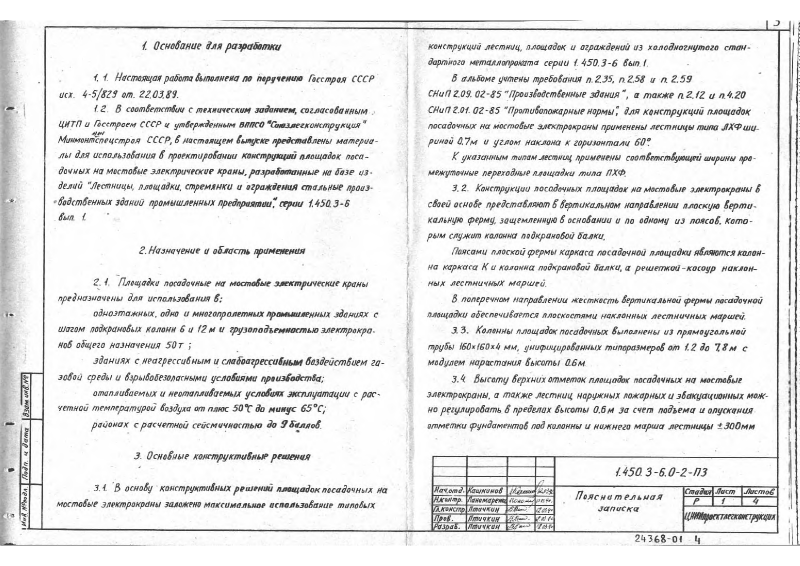 3
1. Основание для разработки
1.1. Настоящая работа выполнена по поручению Госстроя СССР
исх. 4-5/829 от 22.03.89.
1.2. В соответствии с техническим заданием, согласованным
ЦИТП и Госстроем СССР и утвержденным ВПСО "Союзлегконструкция"
Минмонтажспецстроя СССР, в настоящем выпуске представлены материа-
лы для использования в проектировании конструкций площадок поса-
дочных на мостовые электрические краны, разработанные на базе из-
делий "Лестницы, площадки, стремянки и ограждения стальные произ-
водственных зданий промышленных предприятий", серии 1.450.3-6
вып. 1.
2. Назначение и область применения
2.1. Площадки посадочные на мостовые электрические краны
предназначены для использования в:
одноэтажных, одно и многопролетных промышленных зданиях с
шагом подкрановых колонн 6 и 12 м и грузоподъемностью электрокра-
нов общего назначения 50т;
зданиях с неагрессивным и слабоагрессивным воздействием га-
зовой среды и взрывобезопасными условиями производства;
отапливаемых и неотапливаемых условиях эксплуатации с рас-
четной температурой воздуха от плюс 50°С до минус 65°С;
районах с расчетной сейсмичностью до 9 баллов.
3. Основные конструктивные решения
3.1. В основу конструктивных решений площадок посадочных на
мостовые электрокраны заложено максимальное использование типовых
конструкций лестниц, площадок и ограждений из холодногнутого стан-
дартного металлопроката серии 1.450.3-6 вып.1.
В альбоме учтены требования п.2.35, п.2.58 и п.2.59
СНиП 2.09.02-85 "Производственные здания", а также п.2.12 и п.4.20
СНиП 2.01.02-85 "Противопожарные нормы", для конструкций площадок
посадочных на мостовые электрокраны применены лестницы типа ЛХФ ши-
риной 0,7м и углом наклона к горизонтали 60°.
К указанным типам лестниц применены соответствующей ширины про-
межуточные переходные площадки типа ПХФ.
3.2. Конструкции посадочных площадок на мостовые электрокраны в
своей основе представляют в вертикальном направлении плоскую верти-
кальную ферму, защемленную в основании и по одному из поясов, кото-
рым служит колонна подкрановой балки.
Поясами плоской фермы каркаса посадочной площадки являются колон-
на каркаса К и колонна подкрановой балки, а решеткой-косоур наклон-
ных лестничных маршей.
В поперечном направлении жесткость вертикальной фермы посадочной
площадки обеспечивается плоскостями наклонных лестничных маршей.
3.3. Колонны площадок посадочных выполнены из прямоугольной
трубы 160×160×4 мм, унифицированных типоразмеров от 1.2 до 7,8м с
модулем нарастания высоты 0.6м
3.4 Высоту верхних отметок площадок посадочных на мостовые
электрокраны, а также лестниц наружных пожарных и эвакуационных мож-
но регулировать в пределах высоты 0,6м за счет подъема и опускания
отметки фундаментов под колонны и нижнего марша лестницы ±300мм
Инв.№подл. Подп. и дата Взам.инв.№
1.450.3-6.0-2-ПЗ
Нач.отд. Кашкинов
Н.контр. Пономарева
Гл.констр. Птичкин
Пров. Птичкин
Разраб. Птичкин
Пояснительная
записка
Стадия Лист Листов
Р 1 4
24368-01 4